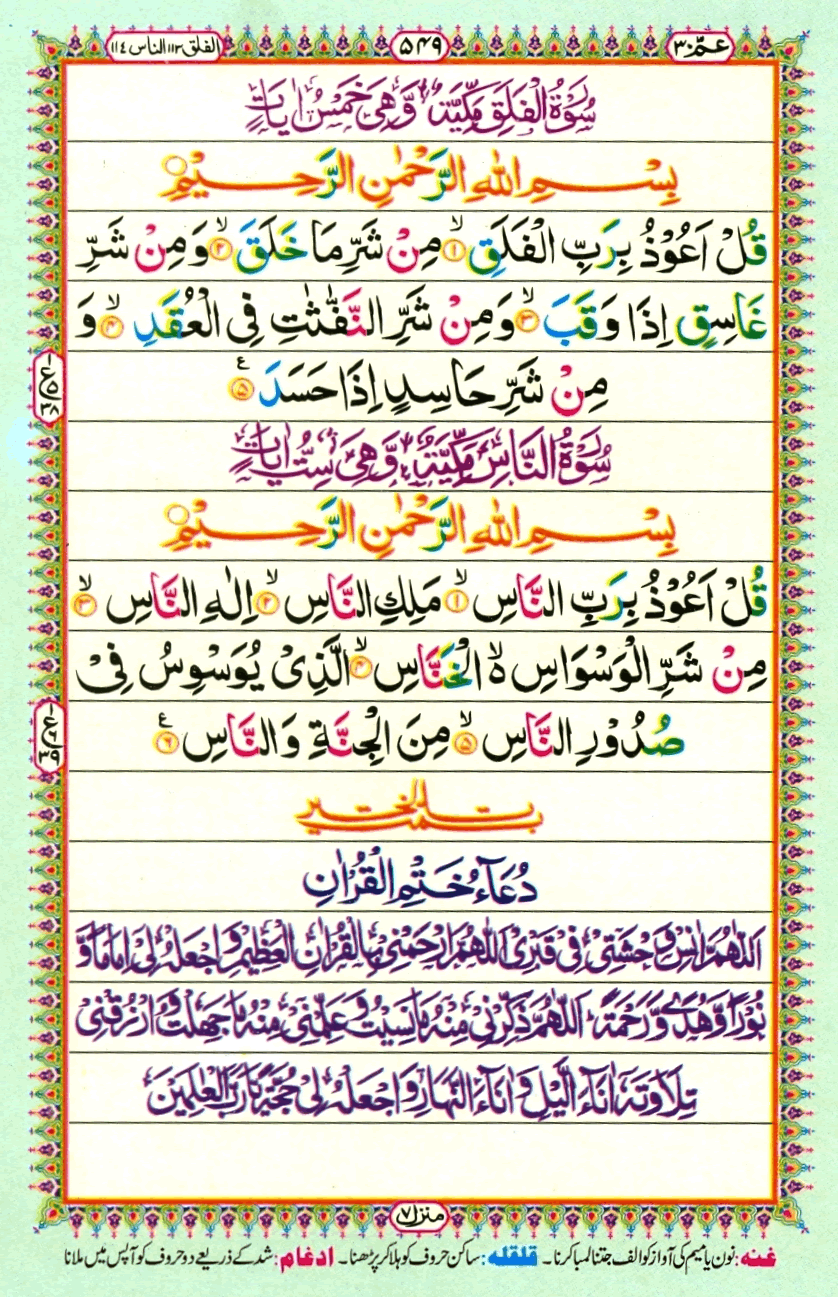 عمّ ٣٠
٥٤٩
الفلق ١١٣ الناس ١١٤
سُوْرَةُ الْفَلَقِ مَكِّيَّةٌ وَّهِيَ خَمْسُ اٰيَاتٍ
بِسْمِ اللهِ الرَّحْمٰنِ الرَّحِيْمِ
قُلْ اَعُوْذُ بِرَبِّ الْفَلَقِ ۙ﴿١﴾ مِنْ شَرِّ مَا خَلَقَ ۙ﴿٢﴾ وَمِنْ شَرِّ
غَاسِقٍ اِذَا وَقَبَ ۙ﴿٣﴾ وَمِنْ شَرِّ النَّفّٰثٰتِ فِى الْعُقَدِ ۙ﴿٤﴾ وَ
مِنْ شَرِّ حَاسِدٍ اِذَا حَسَدَ ﴿٥﴾
سُوْرَةُ النَّاسِ مَكِّيَّةٌ وَّهِيَ سِتُّ اٰيَاتٍ
بِسْمِ اللهِ الرَّحْمٰنِ الرَّحِيْمِ
قُلْ اَعُوْذُ بِرَبِّ النَّاسِ ۙ﴿١﴾ مَلِكِ النَّاسِ ۙ﴿٢﴾ اِلٰهِ النَّاسِ ۙ﴿٣﴾
مِنْ شَرِّ الْوَسْوَاسِ ۙ۬ الْخَنَّاسِ ۙ﴿٤﴾ الَّذِىْ يُوَسْوِسُ فِىْ
صُدُوْرِ النَّاسِ ۙ﴿٥﴾ مِنَ الْجِنَّةِ وَالنَّاسِ ﴿٦﴾
دُعَآءُ خَتْمِ الْقُرْاٰنِ
اَللّٰهُمَّ اٰنِسْ وَحْشَتِىْ فِىْ قَبْرِىْ اَللّٰهُمَّ ارْحَمْنِىْ بِالْقُرْاٰنِ الْعَظِيْمِ وَاجْعَلْهُ لِىْ اِمَامًا وَّ
نُوْرًا وَّهُدًى وَّرَحْمَةً ۚ اَللّٰهُمَّ ذَكِّرْنِىْ مِنْهُ مَا نَسِيْتُ وَعَلِّمْنِىْ مِنْهُ مَا جَهِلْتُ وَارْزُقْنِىْ
تِلَاوَتَهٗ اٰنَآءَ الَّيْلِ وَاٰنَآءَ النَّهَارِ وَاجْعَلْهُ لِىْ حُجَّةً يَّارَبَّ الْعٰلَمِيْنَ
منزل ٧
غنه: نون یا میم کی آواز کو الف جتنا لمبا کرنا۔ قلقله: ساکن حروف کو ہلا کر پڑھنا۔ ادغام: شد کے ذریعے دو حروف کو آپس میں ملانا